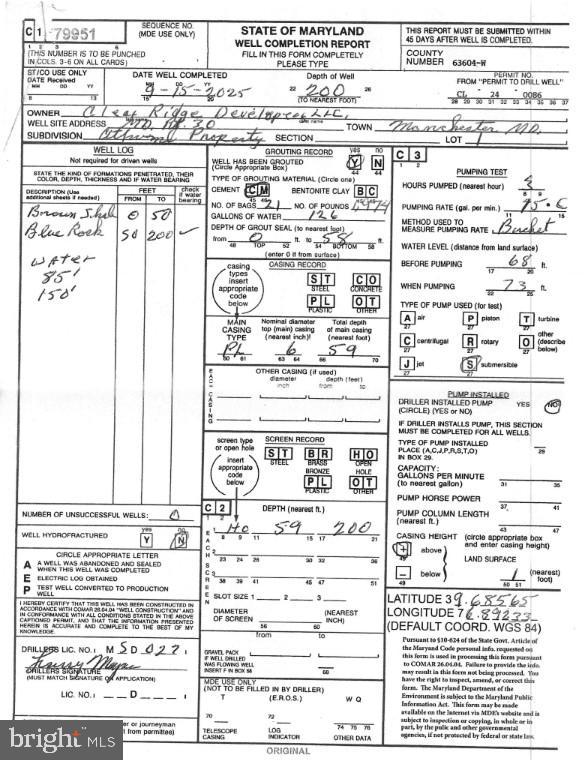 C 1 79951
1 2 3 6
(THIS NUMBER IS TO BE PUNCHED
IN COLS. 3-6 ON ALL CARDS)
SEQUENCE NO.
(MDE USE ONLY)
STATE OF MARYLAND
WELL COMPLETION REPORT
FILL IN THIS FORM COMPLETELY
PLEASE TYPE
THIS REPORT MUST BE SUBMITTED WITHIN
45 DAYS AFTER WELL IS COMPLETED.
COUNTY
NUMBER 63604-W
ST/CO USE ONLY
DATE Received
MM DD YY
8 13
DATE WELL COMPLETED
9-15-2025
Depth of Well
22 200 26
(TO NEAREST FOOT)
PERMIT NO.
FROM "PERMIT TO DRILL WELL"
CL 24 0086
28 29 30 31 32 33 34 35 36 37
OWNER Clear Ridge Develop LLC
WELL SITE ADDRESS MD. Rt. 30 TOWN Manchester MD.
SUBDIVISION Property SECTION LOT 1
WELL LOG
Not required for driven wells
STATE THE KIND OF FORMATIONS PENETRATED, THEIR
COLOR, DEPTH, THICKNESS AND IF WATER BEARING
DESCRIPTION (Use
additional sheets if needed)
FEET
FROM TO
check
if water
bearing
Brown Shal 0 50
Blue Rock 50 200 ✓
Water
85'
150'
NUMBER OF UNSUCCESSFUL WELLS: 0
WELL HYDROFRACTURED yes Y no N
CIRCLE APPROPRIATE LETTER
A A WELL WAS ABANDONED AND SEALED
WHEN THIS WELL WAS COMPLETED
E ELECTRIC LOG OBTAINED
P TEST WELL CONVERTED TO PRODUCTION
WELL
I HEREBY CERTIFY THAT THIS WELL HAS BEEN CONSTRUCTED IN
ACCORDANCE WITH COMAR 26.04.04 "WELL CONSTRUCTION" AND
IN CONFORMANCE WITH ALL CONDITIONS STATED IN THE ABOVE
CAPTIONED PERMIT, AND THAT THE INFORMATION PRESENTED
HEREIN IS ACCURATE AND COMPLETE TO THE BEST OF MY
KNOWLEDGE.
DRILLERS LIC. NO. M S D 027
DRILLERS SIGNATURE
(MUST MATCH SIGNATURE ON APPLICATION)
LIC. NO. D
er or journeyman
t from permittee)
GROUTING RECORD
yes no
WELL HAS BEEN GROUTED
(Circle Appropriate Box) Y N
44 44
TYPE OF GROUTING MATERIAL (Circle one)
CEMENT C M BENTONITE CLAY B C
NO. OF BAGS 21 NO. OF POUNDS
GALLONS OF WATER 126
DEPTH OF GROUT SEAL (to nearest foot)
from 0 ft. to 58 ft.
48 TOP 52 54 BOTTOM 58
(enter 0 if from surface)
casing
types
insert
appropriate
code
below
CASING RECORD
S T C O
STEEL CONCRETE
P L O T
PLASTIC OTHER
MAIN
CASING
TYPE
Nominal diameter
top (main) casing
(nearest inch)!
Total depth
of main casing
(nearest foot)
PL 6 59
60 61 63 64 66 70
EACH CASING
OTHER CASING (if used)
diameter depth (feet)
inch from to
screen type
or open hole
insert
appropriate
code
below
SCREEN RECORD
S T B R H O
STEEL BRASS OPEN
BRONZE HOLE
P L O T
PLASTIC OTHER
C 2
1 2
DEPTH (nearest ft.)
EACH SCREEN
1 HO 59 200
8 9 11 15 17 21
2
23 24 26 30 32 36
3
38 39 41 45 47 51
SLOT SIZE 1 2 3
DIAMETER
OF SCREEN
(NEAREST
INCH)
56 60
from to
GRAVEL PACK
IF WELL DRILLED
WAS FLOWING WELL
INSERT F IN BOX 68
68
MDE USE ONLY
(NOT TO BE FILLED IN BY DRILLER)
T (E.R.O.S.) W Q
70 72
74 75 76
TELESCOPE
CASING
LOG
INDICATOR
OTHER DATA
C 3
1 2
PUMPING TEST
HOURS PUMPED (nearest hour)
8 9
PUMPING RATE (gal. per min.)
11 15
METHOD USED TO
MEASURE PUMPING RATE Bucket
WATER LEVEL (distance from land surface)
BEFORE PUMPING 68 ft.
17 20
WHEN PUMPING 73 ft.
22 25
TYPE OF PUMP USED (for test)
A air P piston T turbine
27 27 27
C centrifugal R rotary O other
(describe
below)
27 27 27
J jet S submersible
27 27
PUMP INSTALLED
DRILLER INSTALLED PUMP YES NO
(CIRCLE) (YES or NO)
IF DRILLER INSTALLS PUMP, THIS SECTION
MUST BE COMPLETED FOR ALL WELLS.
TYPE OF PUMP INSTALLED
PLACE (A,C,J,P,R,S,T,O)
IN BOX 29.
29
CAPACITY:
GALLONS PER MINUTE
(to nearest gallon)
31 35
PUMP HORSE POWER
37 41
PUMP COLUMN LENGTH
(nearest ft.)
43 47
CASING HEIGHT (circle appropriate box
and enter casing height)
+ above
49 LAND SURFACE
- below
49 50 51
(nearest
foot)
LATITUDE 39.68565
LONGITUDE 76.89233
(DEFAULT COORD. WGS 84)
Pursuant to §10-624 of the State Govt. Article of
the Maryland Code personal info. requested on
this form is used in processing this form pursuant
to COMAR 26.04.04. Failure to provide the info.
may result in this form not being processed. You
have the right to inspect, amend, or correct this
form. The Maryland Department of the
Environment is subject to the Maryland Public
Information Act. This form may be made
available on the Internet via MDE's website and is
subject to inspection or copying, in whole or in
part, by the public and other governmental
agencies, if not protected by federal or state law.
ORIGINAL
bright MLS